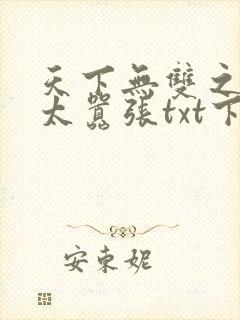 天下無雙之
太囂張txt下
安東妮